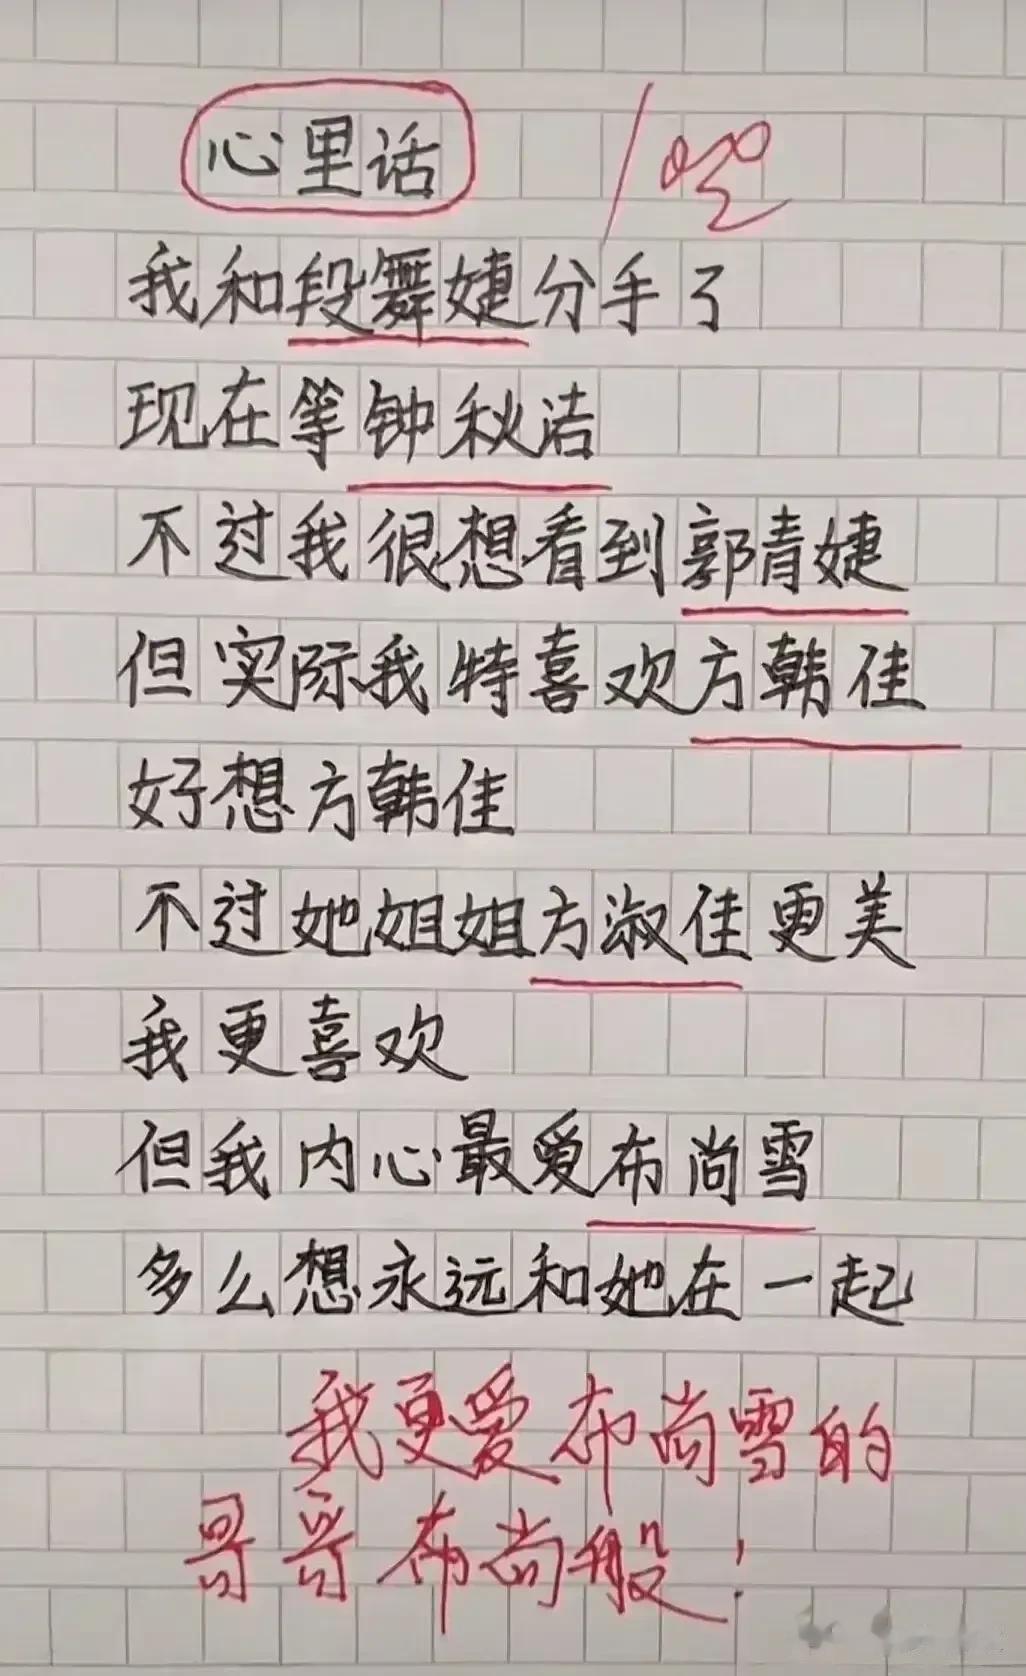 心里话
我和段舞婕分手了
现在等钟秋洁
不过我很想看到郭青婕
但实际我特喜欢方韩佳
好想方韩佳
不过她姐姐方淑佳更美
我更喜欢
但我内心最爱布尚雪
多么想永远和她在一起
我更爱布尚雪的
哥哥布尚般!